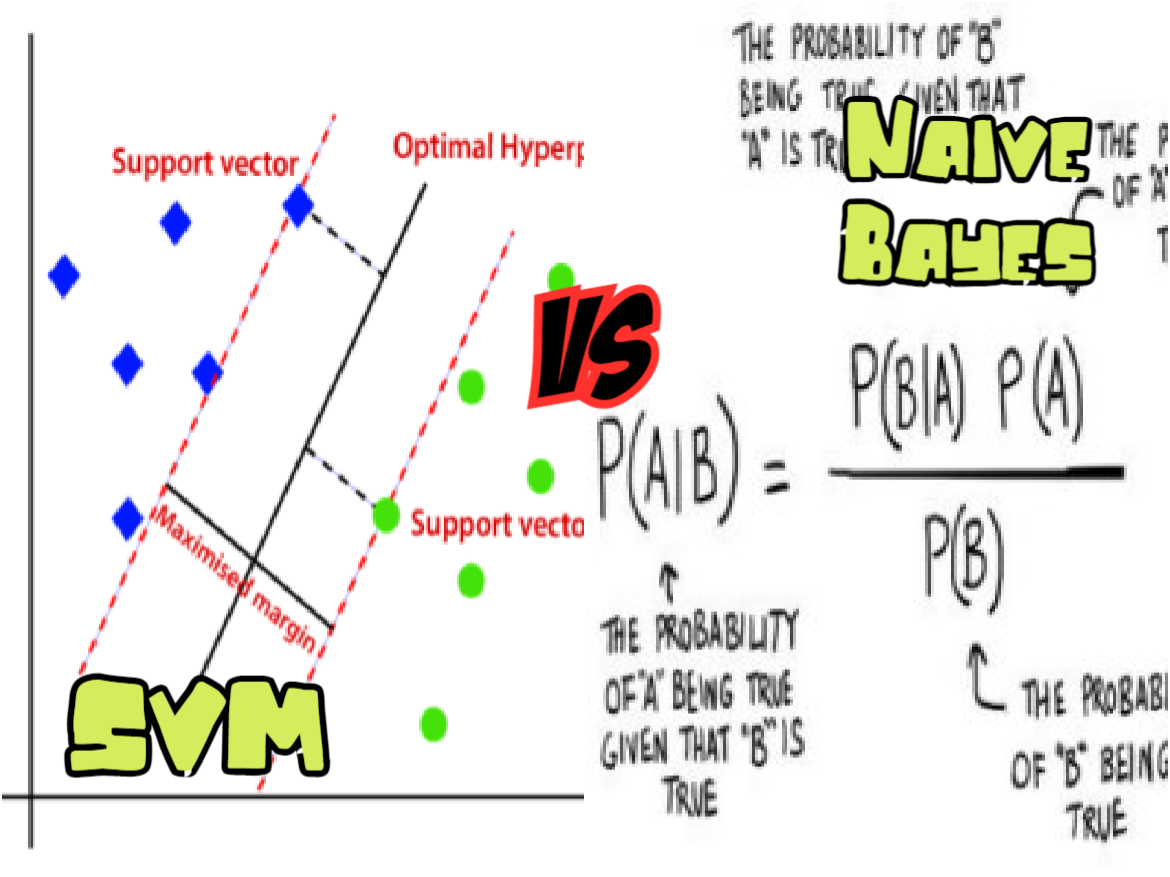 Support vector
Optimal Hyperp
Support vecto
Maximised margin
SVM
VS
THE PROBABILITY OF "B"
BEING TRUE GIVEN THAT
"A" IS TRU
NAIVE
BAYES
THE P
OF "A"
T
P(A|B) =
P(B|A) P(A)
P(B)
THE PROBABILITY
OF "A" BEING TRUE
GIVEN THAT "B" IS
TRUE
THE PROBABI
OF "B" BEING
TRUE